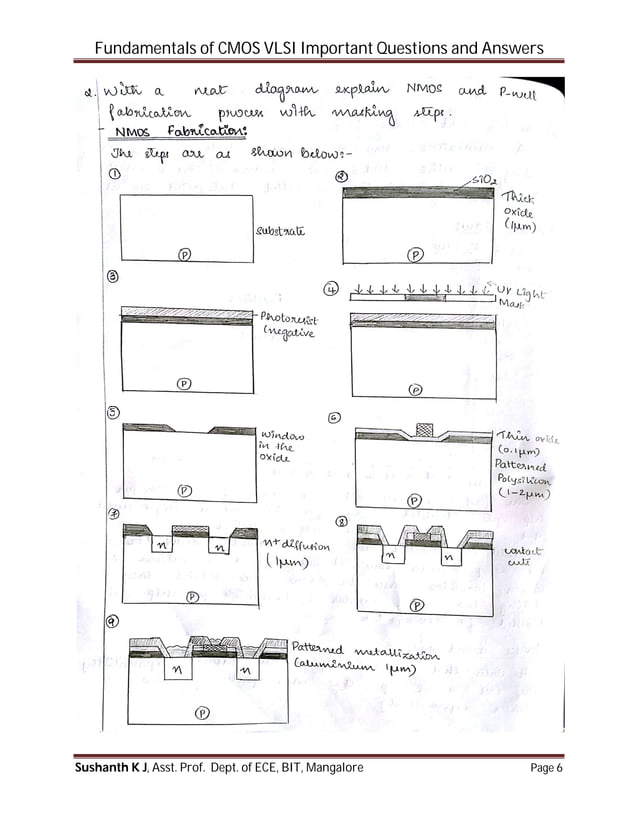 Fundamentals of CMOS VLSI Important Questions and Answers
2. With a neat diagram explain NMOS and P-well
fabrication process with masking steps.
- NMOS Fabrication:
The steps are as shown below:-
①
substrate
P
②
SiO2
Thick
oxide
(1μm)
P
③
Photoresist
(negative
P
④
UV Light
Mask
P
⑤
window
in the
oxide
P
⑥
Thin oxide
(0.1μm)
Patterned
Polysilicon
(1-2μm)
P
⑦
n n
n+ diffusion
(1μm)
P
⑧
n n
contact
cuts
P
⑨
Patterned metallization
(aluminium 1μm)
n n
P
Sushanth K J, Asst. Prof. Dept. of ECE, BIT, Mangalore
Page 6